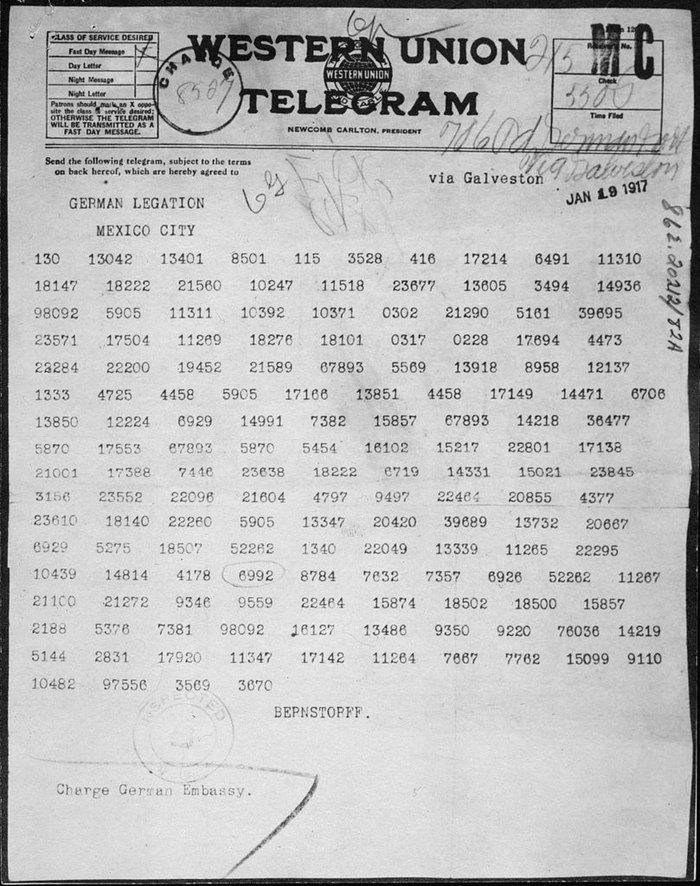 CLASS OF SERVICE DESIRED
Fast Day Message
Day Letter
Night Message
Night Letter
Patrons should mark an X oppo-
site the class of service desired;
OTHERWISE THE TELEGRAM
WILL BE TRANSMITTED AS A
FAST DAY MESSAGE.
CHARGE
WESTERN UNION
WESTERN UNION
TELEGRAM
NEWCOMB CARLTON, PRESIDENT
Check
Time Filed
Send the following telegram, subject to the terms
on back hereof, which are hereby agreed to
via Galveston
JAN 19 1917
GERMAN LEGATION
MEXICO CITY
130 13042 13401 8501 115 3528 416 17214 6491 11310
18147 18222 21560 10247 11518 23677 13605 3494 14936
98092 5905 11311 10392 10371 0302 21290 5161 39695
23571 17504 11269 18276 18101 0317 0228 17694 4473
22284 22200 19452 21589 67893 5569 13918 8958 12137
1333 4725 4458 5905 17166 13851 4458 17149 14471 6706
13850 12224 6929 14991 7382 15857 67893 14218 36477
5870 17553 67893 5870 5454 16102 15217 22801 17138
21001 17388 7446 23638 18222 6719 14331 15021 23845
3156 23552 22096 21604 4797 9497 22464 20855 4377
23610 18140 22260 5905 13347 20420 39689 13732 20667
6929 5275 18507 52262 1340 22049 13339 11265 22295
10439 14814 4178 6992 8784 7632 7357 6926 52262 11267
21100 21272 9346 9559 22464 15874 18502 18500 15857
2188 5376 7381 98092 16127 13486 9350 9220 76036 14219
5144 2831 17920 11347 17142 11264 7667 7762 15099 9110
10482 97556 3569 3670
BERNSTORFF.
INSPECTED
Charge German Embassy.
862.20212/82A